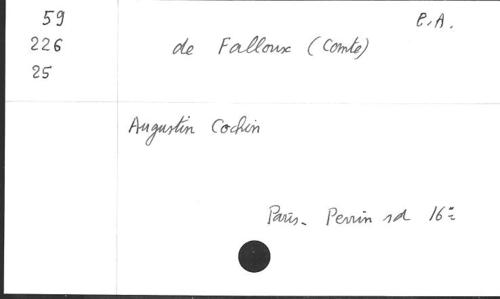 59
P.A.
226
de Falloux (Comte)
25
Augustin Cochin
Paris - Perrin sd 16=